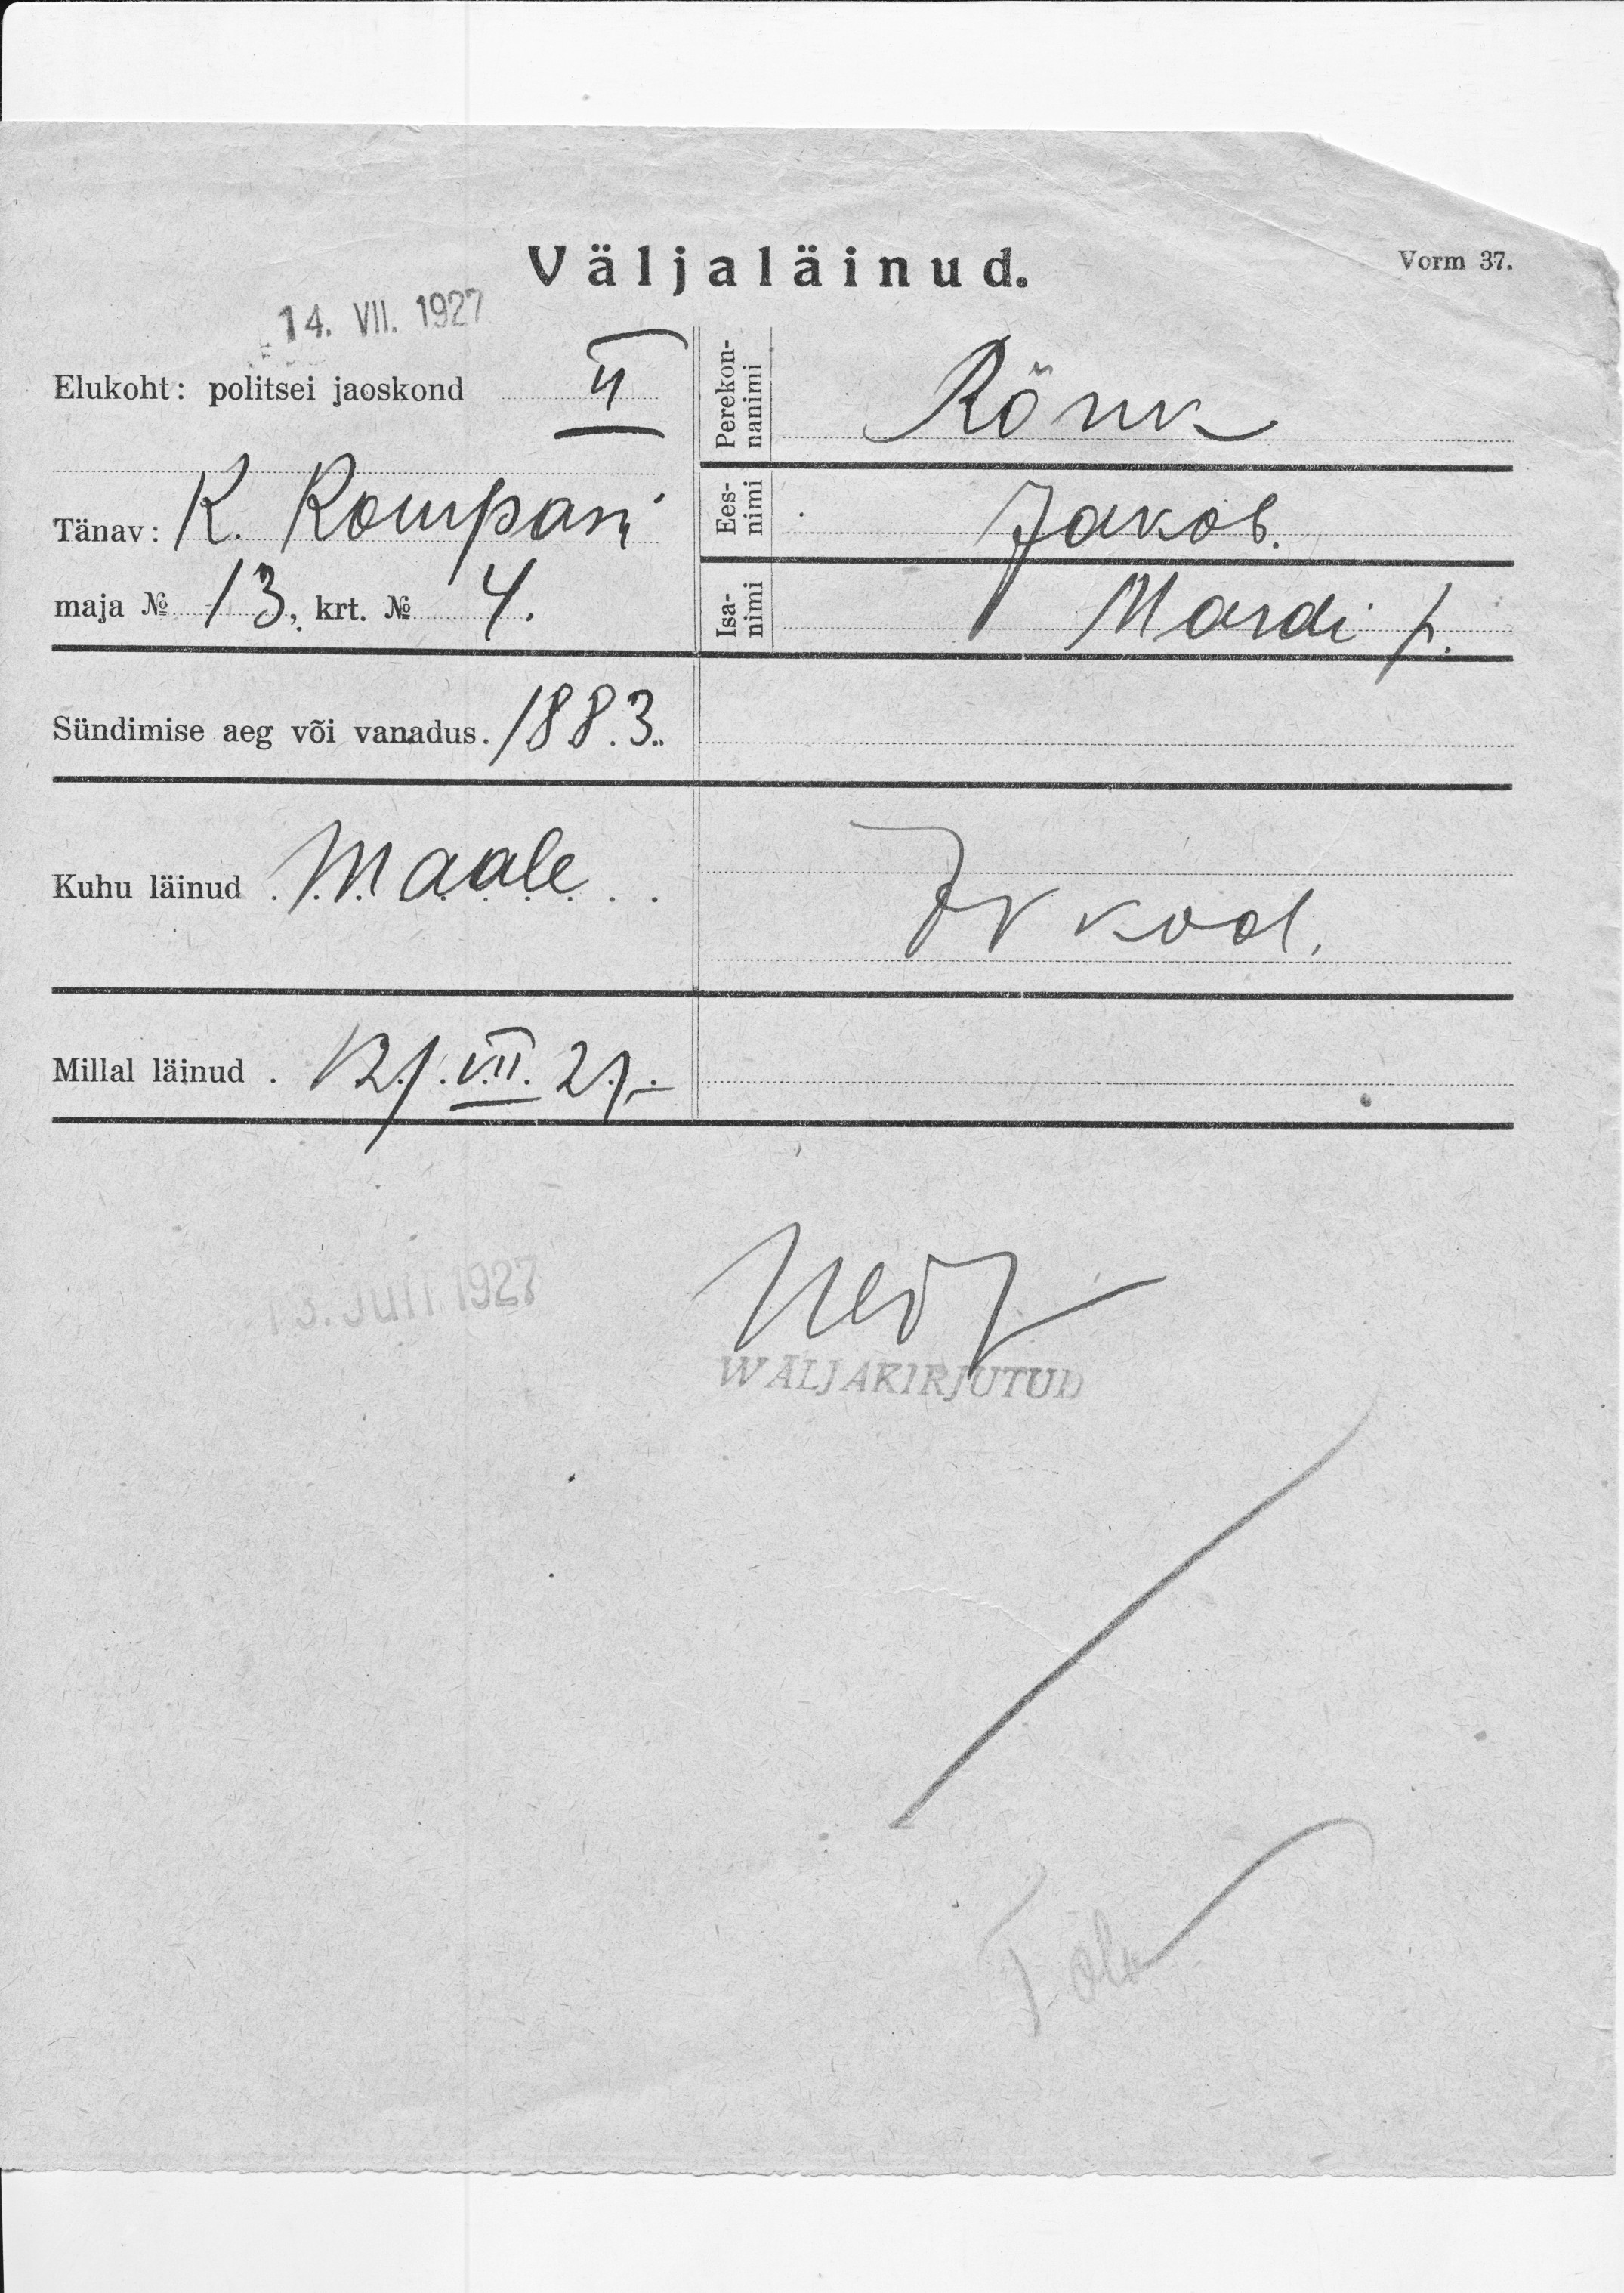 Väljaläinud.
Vorm 37.
14. VII. 1927
Elukoht: politsei jaoskond II
Tänav: K. Kompani
maja № 13, krt. № 4.
Perekon-
nanimi
Rõuk
Ees-
nimi
Jakob.
Isa-
nimi
Mardi p.
Sündimise aeg või vanadus. 1883.
Kuhu läinud . Maale
kod.
Millal läinud . 12/. VII. 27.
13. Juli 1927
WÄLJAKIRJUTUD